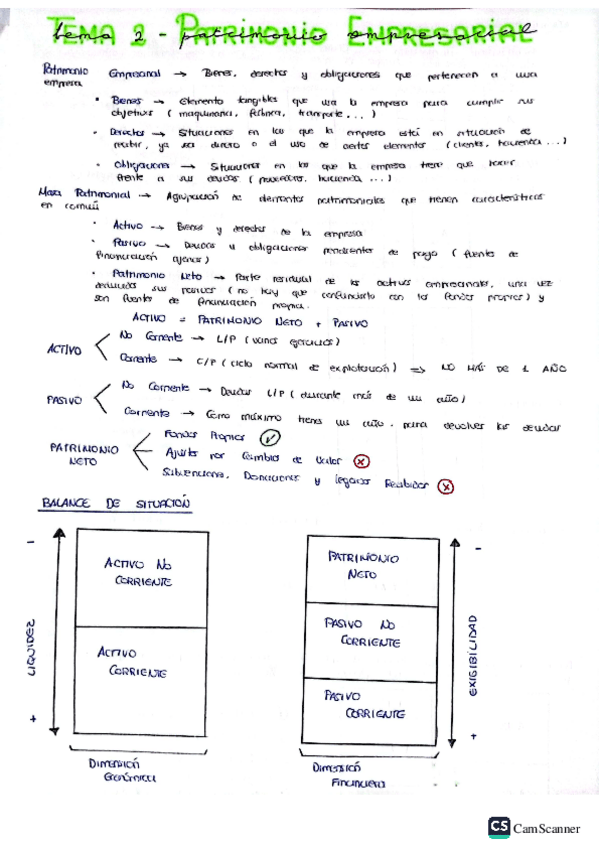 TEMA 2 - PATRIMONIO EMPRESARIAL
tema 2 - patrimonio empresarial
Patrimonio Empresarial → Bienes, derechos y obligaciones que pertenecen a una
empresa
• Bienes → elemento tangibles que usa la empresa para cumplir sus
objetivos ( maquinaria, fábrica, transporte, ... )
• Derechos → Situaciones en las que la empresa está en situación de
recibir, ya sea dinero o el uso de ciertos elementos ( clientes, hacienda ... )
• Obligaciones → Situaciones en las que la empresa tiene que hacer
frente a sus deudas ( proveedores, hacienda ... )
Masa Patrimonial → Agrupación de elementos patrimoniales que tienen características
en común
• Activo → Bienes y derechos de la empresa
• Pasivo → Deudas u obligaciones pendientes de pago ( fuente de
financiación ajenas )
• Patrimonio Neto → Parte residual de los activos empresariales, una vez
deducidos sus pasivos ( no hay que confundirlo con los fondos propios ) y
son fuentes de financiación propia.
ACTIVO = PATRIMONIO NETO + PASIVO
ACTIVO
No Corriente → L/P ( varios ejercicios )
Corriente → C/P ( ciclo normal de explotación ) ⇒ NO MÁS DE 1 AÑO
PASIVO
No Corriente → Deudas L/P ( durante más de un año )
Corriente → Como máximo tienes un año para devolver las deudas
PATRIMONIO
NETO
Fondos Propios ✓
Ajustes por Cambios de Valor ✗
Subvenciones, Donaciones y legados Recibidos ✗
BALANCE DE SITUACIÓN
LIQUIDEZ
-
+
ACTIVO NO
CORRIENTE
ACTIVO
CORRIENTE
Dimensión
Económica
PATRIMONIO
NETO
PASIVO NO
CORRIENTE
PASIVO
CORRIENTE
Dimensión
Financiera
EXIGIBILIDAD
-
+
CS CamScanner